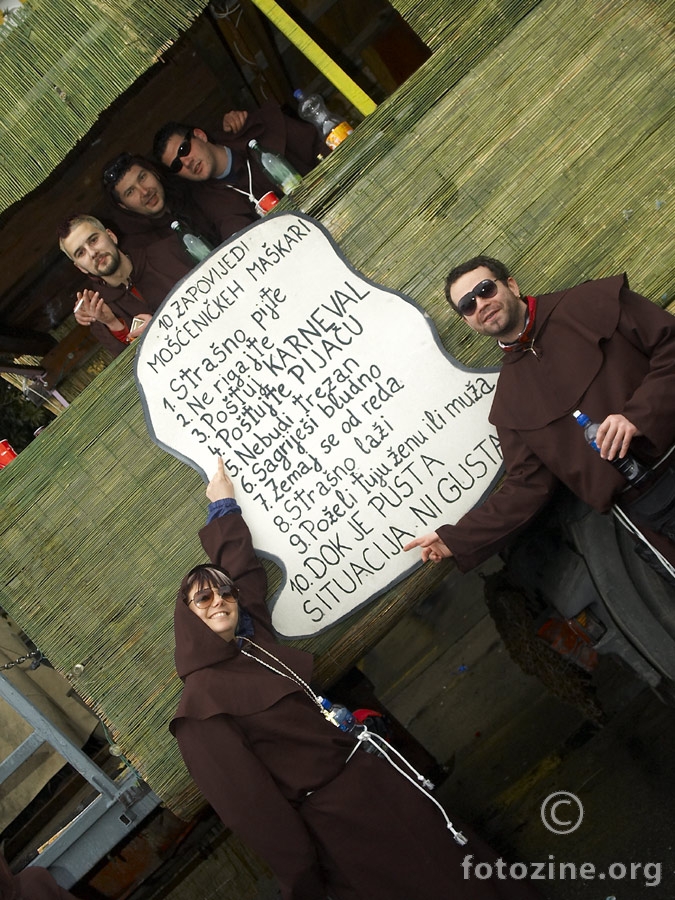 10 ZAPOVIJEDI
MOŠĆENIČKEH MAŠKARI
1. Strašno pijte
2. Ne rigajte
3. Poštuj KARNEVAL
4. Poštujte PIJAČU
5. Nebudi trezan
6. Sagriješi bludno
7. Zemaj se od reda
8. Strašno laži
9. Poželi tuju ženu ili muža
10. DOK JE PUSTA
SITUACIJA NI GUSTA
©
fotozine.org